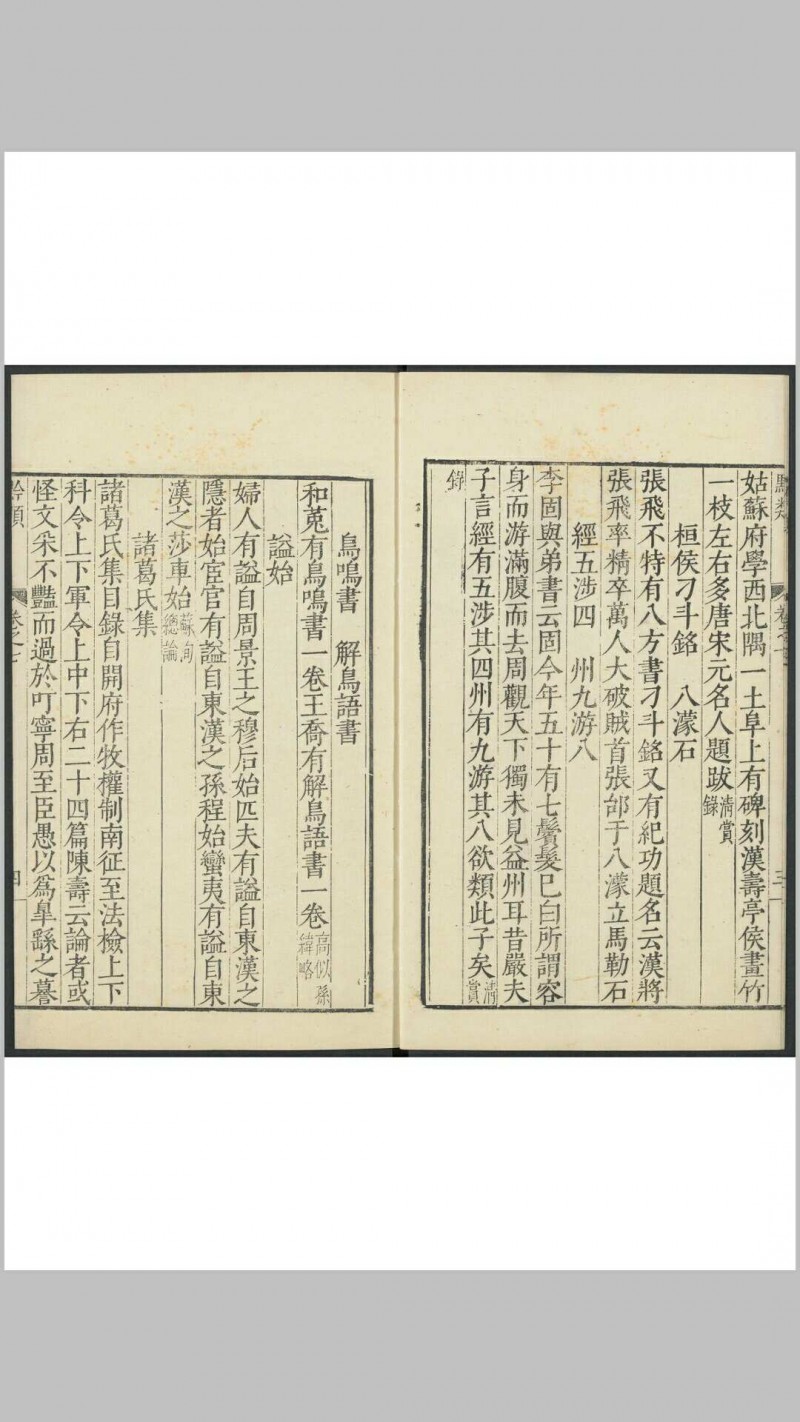 姑蘇府學西北隅一土阜上有碑刻漢壽亭侯畫竹
一枝左右多唐宋元名人題跋清賞錄
桓侯刁斗銘 八濛石
張飛不特有八方書刁斗銘又有紀功題名云漢將
張飛率精卒萬人大破賊首張郃于八濛立馬勒石
經五涉四 州九游八
李固與弟書云固今年五十有七鬢髮已白所謂容
身而游滿腹而去周觀天下獨未見益州耳昔嚴夫
子言經有五涉其四州有九游其八欲類此子矣清賞
錄
鳥鳴書 解鳥語書
和菟有鳥鳴書一卷王喬有解鳥語書一卷高似孫緯略
謚始
婦人有謚自周景王之穆后始匹夫有謚自東漢之
隱者始宦官有謚自東漢之孫程始蠻夷有謚自東
漢之莎車始蘇洵總論
諸葛氏集
諸葛氏集目錄自開府作牧權制南征至法檢上下
科令上下軍令上中下右二十四篇陳壽云論者或
怪文釆不豔而過於叮寧周至臣愚以爲臯繇之謩
卷之七
四